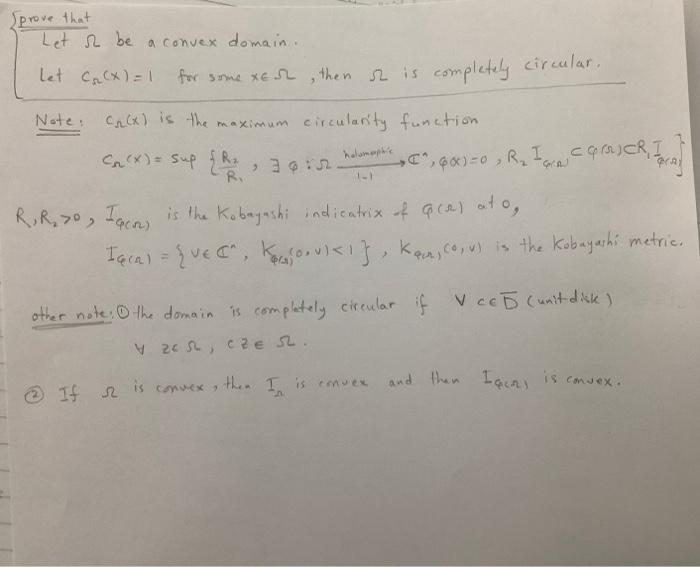 prove that
Let Ω be a convex domain.
Let C_Ω(x) = 1 for some x ∈ Ω, then Ω is completely circular.
Note: C_Ω(x) is the maximum circularity function
C_Ω(x) = sup { R₂/R₁ , ∃ φ : Ω holomorphic/1-1 → ℂⁿ, φ(x)=0, R₂ I_φ(Ω) ⊂ φ(Ω) ⊂ R₁ I_φ(Ω) }
R₁R₂>0, I_φ(Ω) is the Kobayashi indicatrix of φ(Ω) at 0,
I_φ(Ω) = { v ∈ ℂⁿ, K_φ(Ω)(0,v) < 1 }, K_φ(Ω)(0,v) is the Kobayashi metric.
other note: ① the domain is completely circular if ∀ c ∈ D̅ (unit disk)
∀ z ∈ Ω, c z ∈ Ω.
② If Ω is convex, then I_Ω is convex and then I_φ(Ω) is convex.